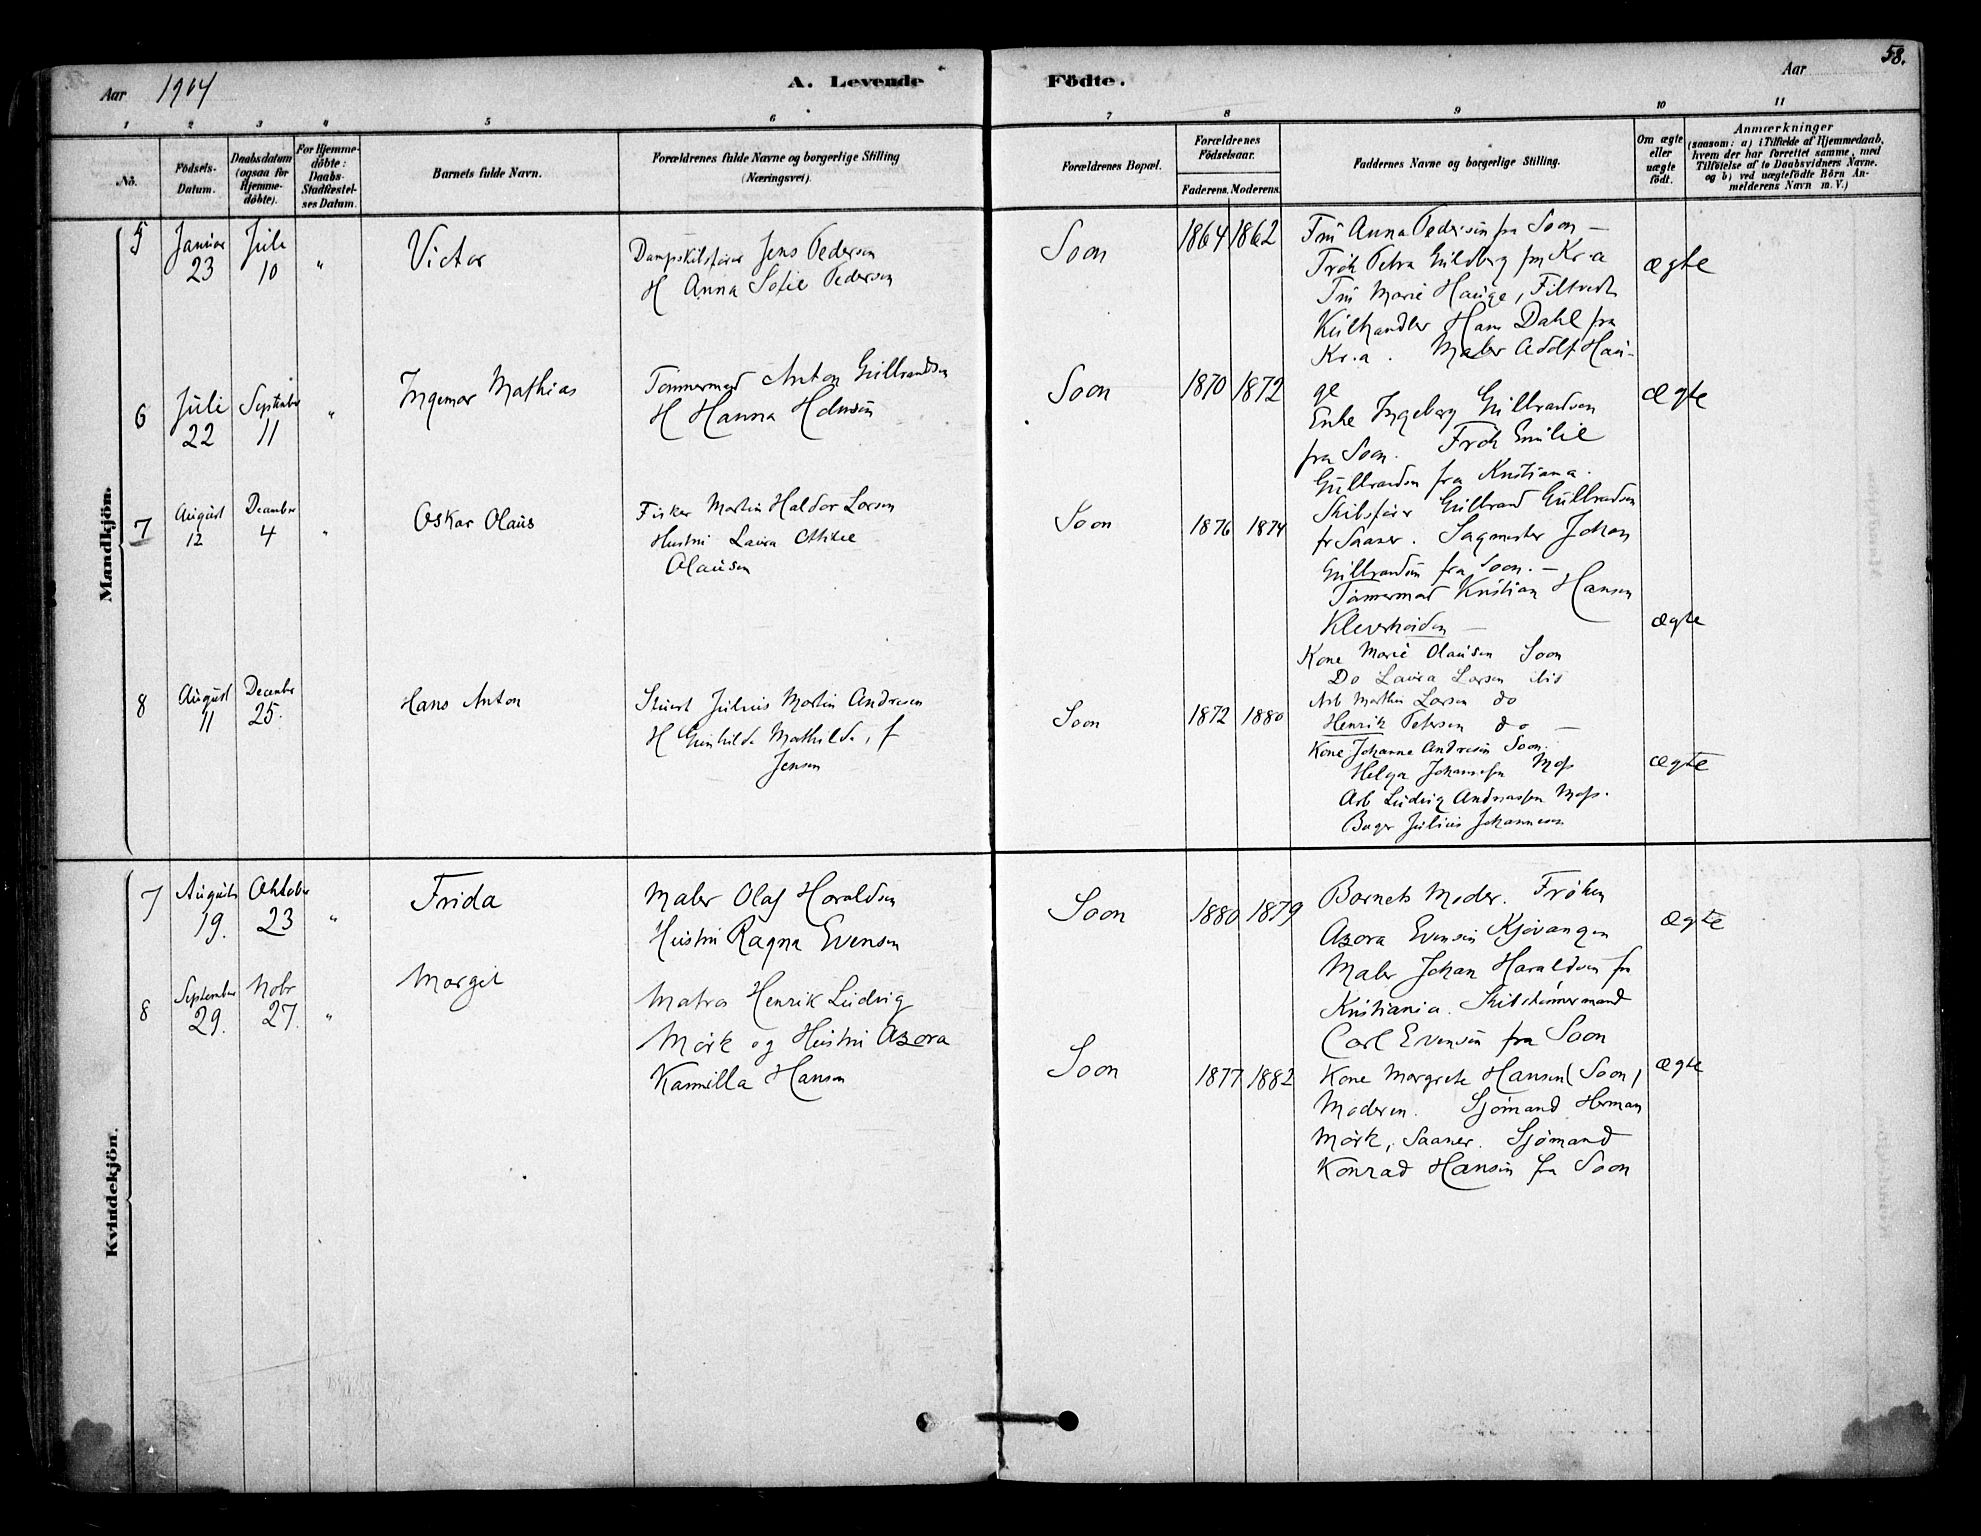 58.
Aar 1904 A. Levende Födte. Aar
1 2 3 4 5 6 7 8 9 10 11
No. Födsels-Datum. Daabsdatum (ogsaa for Hjemme-döbte). For Hjemme-döbte: Daabs-Stadfæstel-ses Datum. Barnets fulde Navn. Forældrenes fulde Navne og borgerlige Stilling (Næringsvei). Forældrenes Bopæl. Forældrenes Födselsaar. Faderens. Moderens. Faddernes Navne og borgerlige Stilling. Om ægte eller uægte födt. Anmærkninger (saasom: a) i Tilfælde af Hjemmedaab, hvem der har forrettet samme, med Tilföielse af to Daabsvidners Navne. og b) ved uægtefödte Börn An-melderens Navn m. V.)
Mandkjön.
5 Januar 23 Juli 10 " Victor
Dampskibsfører Jens Pedersen
H Anna Sofie Pedersen
Soon 1864 1862
Fru Anna Pedersen fra Soon –
Frök Petra Guldberg fra Kr.a
Fru Marie Hauge, Filtvedt
Kulhandler Hans Dahl fra
Kr.a. Maler Adolf Hau-
ge
ægte
6 Juli 22 September 11 " Ingemar Mathias
Tømmermand Anton Gulbrandsen
H Hanna
Soon 1870 1872
Enke Ingeborg Gulbrandsen
fra Soon. Frök Emilie
Gulbrandsen fra Kristiana.
Skibsfører Gulbrand Gulbrandsen
fr Saaner. Sagmester Johan
Gulbrandsen fra Soon. –
Tømmermand Kristian Hansen
Kleverheiden –
ægte
7 August 12 December 4 " Oskar Olaus
Fisker Martin Haldor Larsen
Hustru Laura
Olausen
Soon 1876 1874
Kone Marie Olausen Soon
Do Laura Larsen ibid
Arb Martin Larsen do
Henrik Petersen do –
ægte
8 August 11 December 25. Hans Anton
Julius Martin Andresen
H Gunhilda Mathilda, f
Jensen
Soon 1872 1880
Kone Johanne Andresen Soon.
Helga Johannesen Moss
Arb Ludvig Andreassen Moss.
Bager Julius Johannesen
ægte
Kvindekjön.
7 August 19. Oktober 23 " Frida
Maler Olaf Haraldsen
Hustru Ragna Evensen
Soon 1880 1879
Barnets Moder. Frøken
Azora Evensen Kjøvangen
Maler Johan Haraldsen fra
Kristiania. Skibstømmermand
Carl Evensen fra Soon
ægte
8 September 29. Nobr 27. " Margit
Matros Henrik Ludvig
Mørk og Hustru Azora
Kamilla Hansen
Soon 1877 1882
Kone Margrete Hansen (Soon)
Moderen. Sjömand Herman
Mørk, Saaner. Sjömand
Konrad Hansen fra Soon
ægte